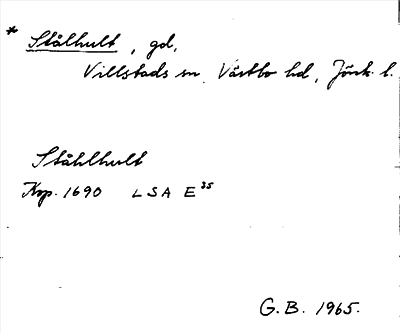 * Stålhult, gd,
Villstads sn. Västbo hd, Jönk. l.
Ståhlhult
Kop. 1690 LSA E 35
G.B. 1965.